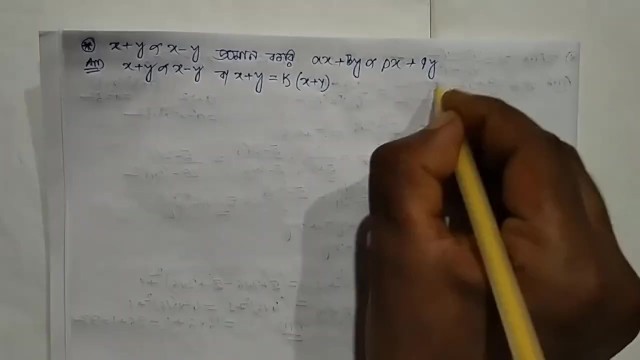 x+y ∝ x-y প্রমাণ করি ax+by ∝ px+qy
Ans x+y ∝ x-y বা x+y = K (x+y)